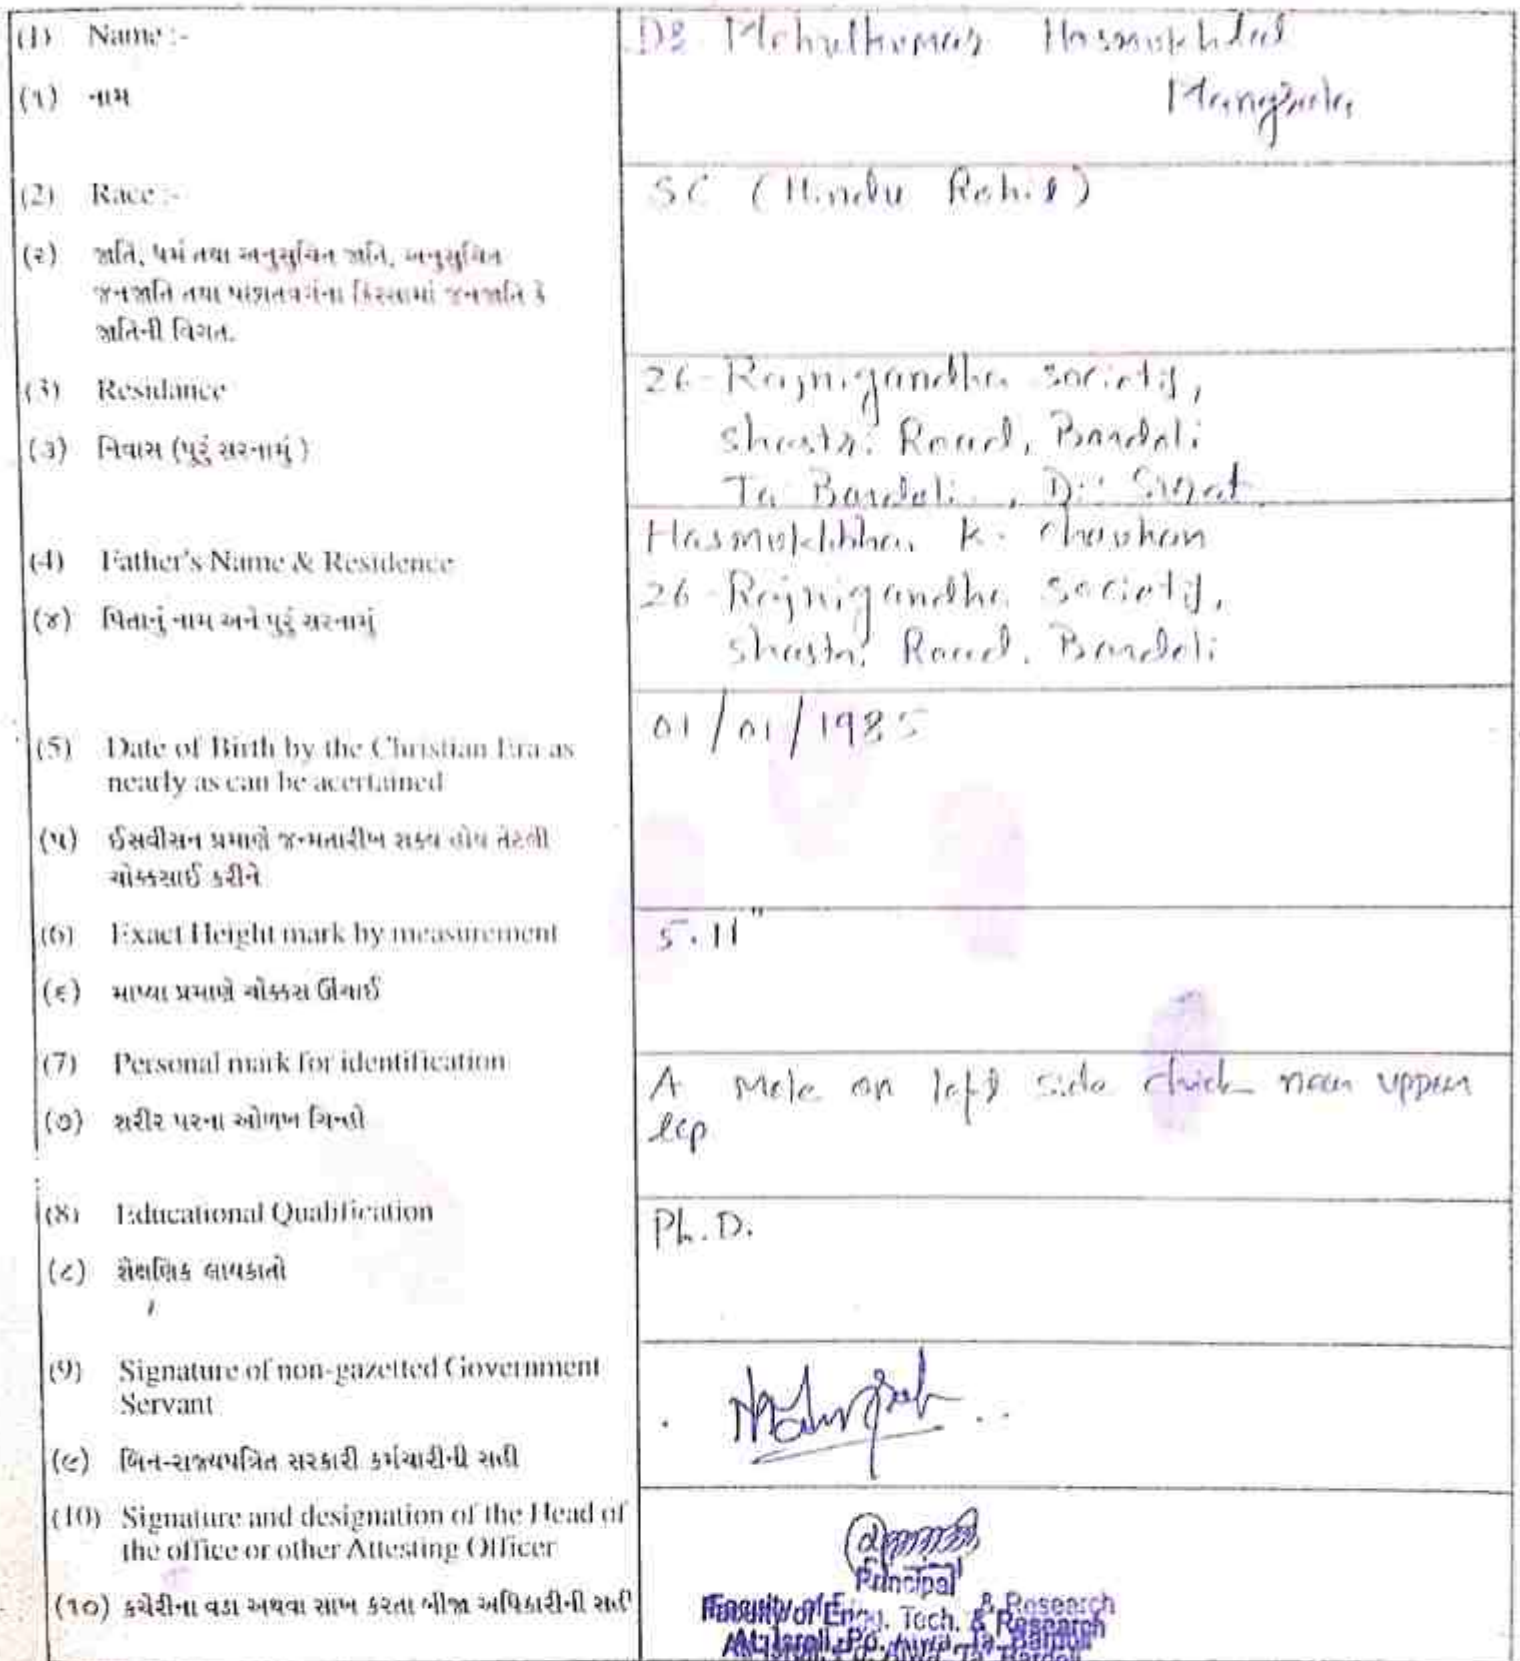 (1) Name :-
(૧) નામ
Dr. Mehulkumar Hasmukhlal
Mangrola
(2) Race :-
(૨) જાતિ, ધર્મ તથા અનુસુચિત જાતિ, અનુસુચિત
જનજાતિ તથા પછાતવર્ગના કિસ્સામાં જનજાતિ કે
જાતિની વિગત.
SC (Hindu Rohit)
(3) Residance
(૩) નિવાસ (પુરૂં સરનામું )
26-Rajnigandha society,
shastri Road, Bardoli
Ta Bardoli, Di: Surat
(4) Father's Name & Residence
(૪) પિતાનું નામ અને પુરૂં સરનામું
Hasmukhbhai K. Chauhan
26-Rajnigandha society,
shastri Road, Bardoli
(5) Date of Birth by the Christian Era as
nearly as can be acertained
(૫) ઈસવીસન પ્રમાણે જન્મતારીખ શક્ય હોય તેટલી
ચોક્કસાઈ કરીને
01/01/1985
(6) Exact Height mark by measurement
(૬) માપ્યા પ્રમાણે ચોક્કસ ઊંચાઈ
5.11"
(7) Personal mark for identification
(૭) શરીર પરના ઓળખ ચિન્હો
A Mole on left side chick near upper
lip
(8) Educational Qualification
(૮) શૈક્ષણિક લાયકાતો
Ph.D.
(9) Signature of non-gazetted Government
Servant
(૯) બિન-રાજ્યપત્રિત સરકારી કર્મચારીની સહી
(10) Signature and designation of the Head of
the office or other Attesting Officer
(૧૦) કચેરીના વડા અથવા સાખ કરતા બીજા અધિકારીની સહી
Principal
Faculty of Eng. Tech. & Research